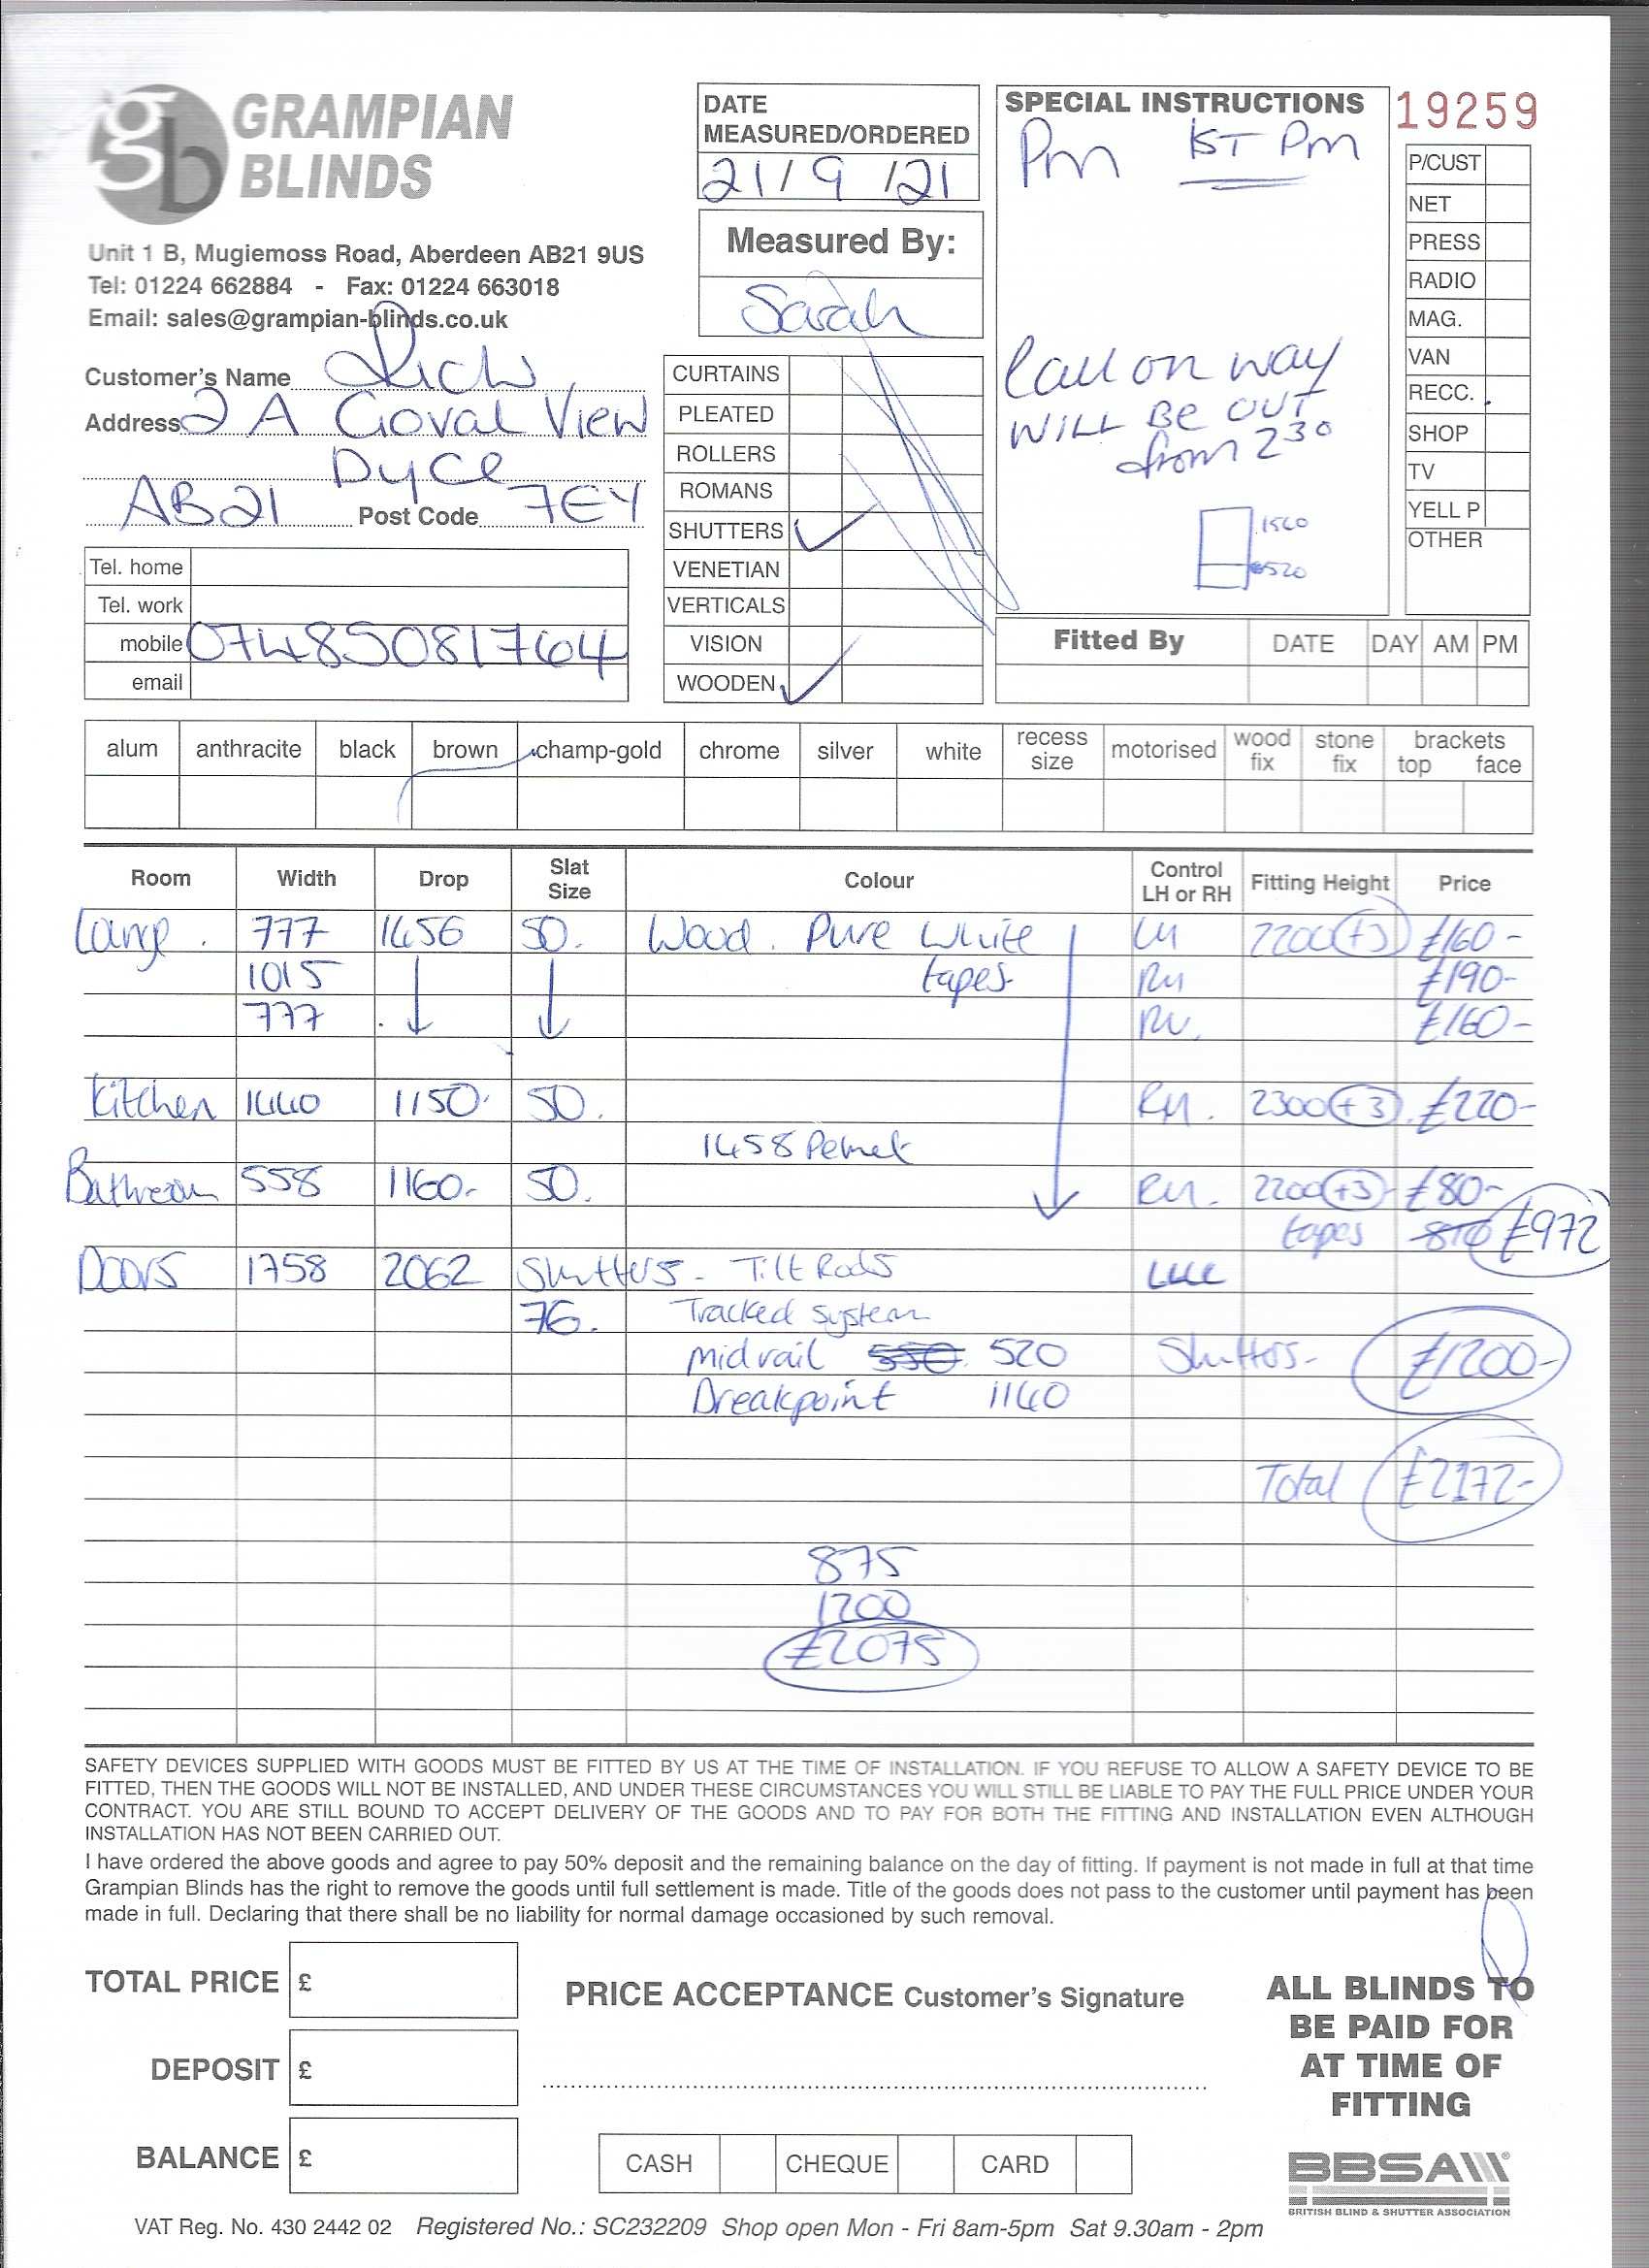 GRAMPIAN
BLINDS
Unit 1 B, Mugiemoss Road, Aberdeen AB21 9US
Tel: 01224 662884 - Fax: 01224 663018
Email: sales@grampian-blinds.co.uk
DATE
MEASURED/ORDERED
21/9/21
Measured By:
Sarah
SPECIAL INSTRUCTIONS
Pm 1ST Pm
Call on way
WILL BE OUT
from 2 30
1560
520
19259
P/CUST
NET
PRESS
RADIO
MAG.
VAN
RECC.
SHOP
TV
YELL P
OTHER
Customer's Name Rich
Address 2 A Goval View
Dyce
AB21 Post Code 7EY
Tel. home
Tel. work
mobile 07485081764
email
CURTAINS
PLEATED
ROLLERS
ROMANS
SHUTTERS ✓
VENETIAN
VERTICALS
VISION
WOODEN ✓
Fitted By DATE DAY AM PM
alum anthracite black brown champ-gold chrome silver white recess size motorised wood fix stone fix brackets top face
Room Width Drop Slat Size Colour Control LH or RH Fitting Height Price
777 1456 50. Wood. Pure White LH 2200 +3 £160-
1015 tapes RH £190-
777 RH. £160-
Kitchen 1440 1150 50. RH. 2300 +3 £220-
1458 Pelmet
Bathroom 558 1160- 50. RH. 2200 +3 £80-
tapes £972
Doors 1758 2062 Shutters - Tilt Rods
76. Tracked system
Midrail 550 520 Shutters- £1200-
Breakpoint 1140
Total £2172-
875
1200
£2075
SAFETY DEVICES SUPPLIED WITH GOODS MUST BE FITTED BY US AT THE TIME OF INSTALLATION. IF YOU REFUSE TO ALLOW A SAFETY DEVICE TO BE
FITTED, THEN THE GOODS WILL NOT BE INSTALLED, AND UNDER THESE CIRCUMSTANCES YOU WILL STILL BE LIABLE TO PAY THE FULL PRICE UNDER YOUR
CONTRACT. YOU ARE STILL BOUND TO ACCEPT DELIVERY OF THE GOODS AND TO PAY FOR BOTH THE FITTING AND INSTALLATION EVEN ALTHOUGH
INSTALLATION HAS NOT BEEN CARRIED OUT.
I have ordered the above goods and agree to pay 50% deposit and the remaining balance on the day of fitting. If payment is not made in full at that time
Grampian Blinds has the right to remove the goods until full settlement is made. Title of the goods does not pass to the customer until payment has been
made in full. Declaring that there shall be no liability for normal damage occasioned by such removal.
TOTAL PRICE £
DEPOSIT £
BALANCE £
PRICE ACCEPTANCE Customer's Signature
CASH CHEQUE CARD
ALL BLINDS TO
BE PAID FOR
AT TIME OF
FITTING
BBSA
BRITISH BLIND & SHUTTER ASSOCIATION
VAT Reg. No. 430 2442 02 Registered No.: SC232209 Shop open Mon - Fri 8am-5pm Sat 9.30am - 2pm